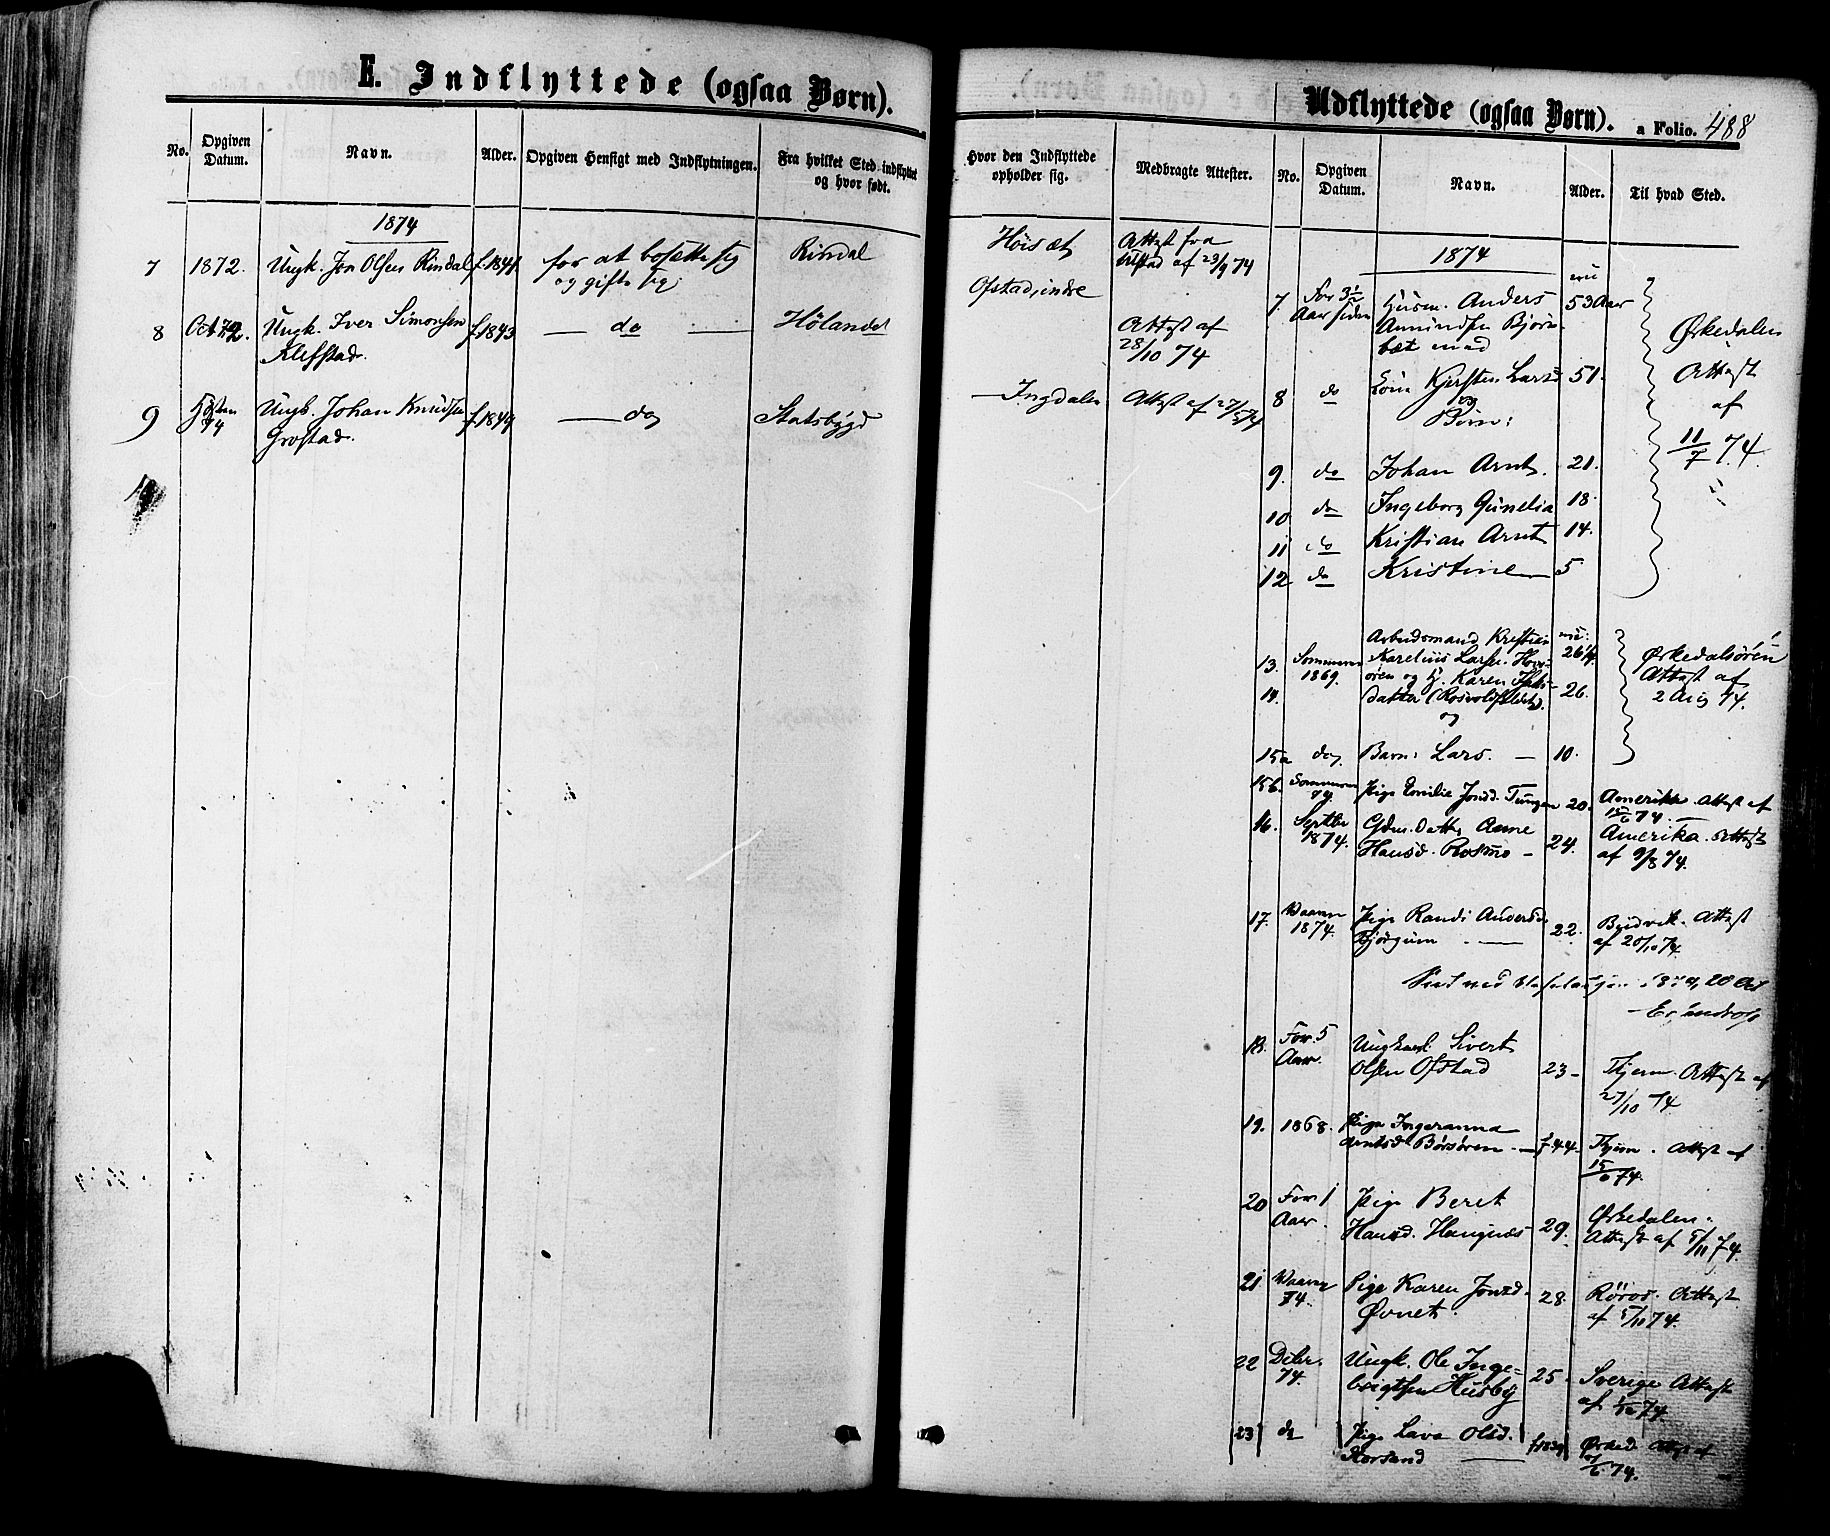 E. Indflyttede (ogsaa Børn).
No. Opgiven Datum. Navn. Alder. Opgiven Hensigt med Indflytningen. Fra hvilket Sted indflyttet og hvor født.
1874
7 1872. Ungk. Jon Olsen Rindal f. 1841 for at bosette sig Rindal
og gifte sig
8 Oct 72. Ungk. Iver Simonsen f. 1843 — do — Hølandet
Klefstad.
9 Høsten Ungk. Johan Knudsen f. 1849 — do Statsbygd
74 Grostad.
Udflyttede (ogsaa Børn). a Folio. 488
Hvor den Indflyttede opholder sig. Medbragte Attester. No. Opgiven Datum. Navn. Alder. Til hvad Sted.
Höisæt Attest fra
af 23/9 74
Ofstad, indre
Attest af
28/10 74
Ingdalen Attest af
1874
7. For 3½ Husm. Anders 53 Aar
Aar siden Amundsen Bjørn-
bæt med
8 do Kone Kjersten Larsd 51.
og
Børn:
9. do Johan Arnt. 21.
10 do Ingeborg Gunelia 18.
11 do Kristian Arnt 14.
12 do Kristine — 5
Ørkedalen
Attest
af
11/7 74.
13. Sommeren Arbeidsmand Kristian
1869. Karelius Larsen
14. og H. Karen
datter 26.
og
15a do Barn: Lars. — 10.
Ørkedalsören
Attest af
2 Aug 74.
15b. Sommeren Pige Emilie Jonsd. Tungen 20. Amerika. Attest af
74. 74. —
16. Septbr Gdm. datter Anne Amerika. Attest
1874. Hansd. Rosmo — 24. af 9/8 74.
17. Vaaren Pige Randi Andersd.
1874. Bjørgum — 22. Budvik. Attest
af 20/10 74.
18. For 5 Ungkarl Sivert
Aar. Olsen Ofstad 23 — Thjem. Attest af
27/10 74
19. 1868. Pige Ingeranna
Arntsd. Börsören — f. 44. Attest af
74.
20 For 1 Pige Beret
Aar. Hansd. Haugnæs 29. Ørkedalen.
Attest af 5/11 74.
21 Vaaren Pige Karen Jonsd.
74. Øvnet 28. Röros. Attest
af 5/11 74.
22 Decbr. Ungk. Ole Inge-
74. brigtsen Husby 25. Sverige Attest
af 74.
23 do Pige Lava Olsd.
Korsand — Attest af
74.